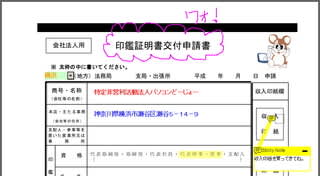 ワオ!
会社法人用
印鑑証明書交付申請書
※ 太枠の中に書いてください。
横浜 (地方) 法務局 支局・出張所 平成 年 月 日 申請
商号・名称
(会社等の名前)
特定非営利活動法人パソコンどーじょー
収入印紙欄
本店・主たる事務所
(会社等の住所)
神奈川県横浜市瀬谷区瀬谷5-14-9
収入
印紙
支配人・参事等を
置いた営業所又は
印 資格
代表取締役・取締役・代表社員・代表理事・理事・支配人
Sticky Note
収入印紙を買ってきてね。